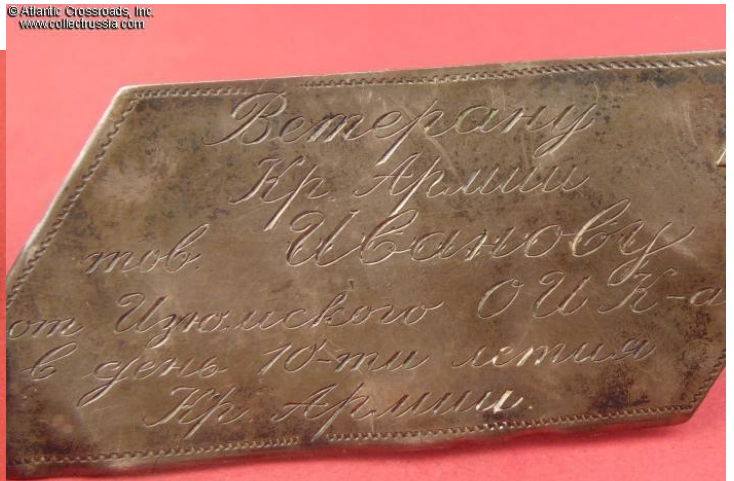 © Atlantic Crossroads, Inc.
www.collectrussia.com
Ветерану
Кр. Армии
тов. Иванову
от Изюмского ОИК-а
в день 10-ти летия
Кр. Армии.